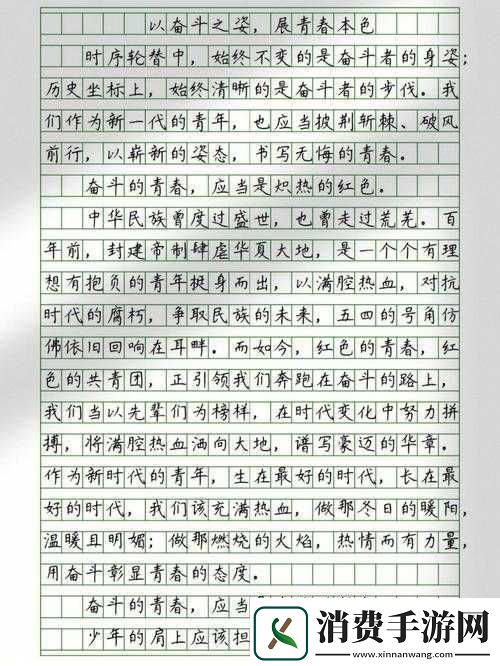 以奋斗之姿，展青春本色
时序轮替中，始终不变的是奋斗者的身姿；
历史坐标上，始终清晰的是奋斗者的步伐。我
们作为新一代的青年，也应当披荆斩棘、破风
前行，以崭新的姿态，书写无悔的青春。
奋斗的青春，应当是炽热的红色。
中华民族曾度过盛世，也曾走过荒芜。百
年前，封建帝制肆虐华夏大地，是一个个有理
想有抱负的青年挺身而出，以满腔热血，对抗
时代的腐朽，争取民族的未来，五四的号角仿
佛依旧回响在耳畔。而如今，红色的青春，红
色的共青团，正引领我们奔跑在奋斗的路上，
我们当以先辈们为榜样，在时代变化中努力拼
搏，将满腔热血洒向大地，谱写豪迈的华章。
作为新时代的青年，生在最好的时代，长在最
好的时代，我们该充满热血，做那冬日的暖阳，
温暖且明媚；做那燃烧的火焰，热情而有力量，
用奋斗彰显青春的态度。
奋斗的青春，应当
少年的肩上应该担
消费手游网
www.xinnanwang.com